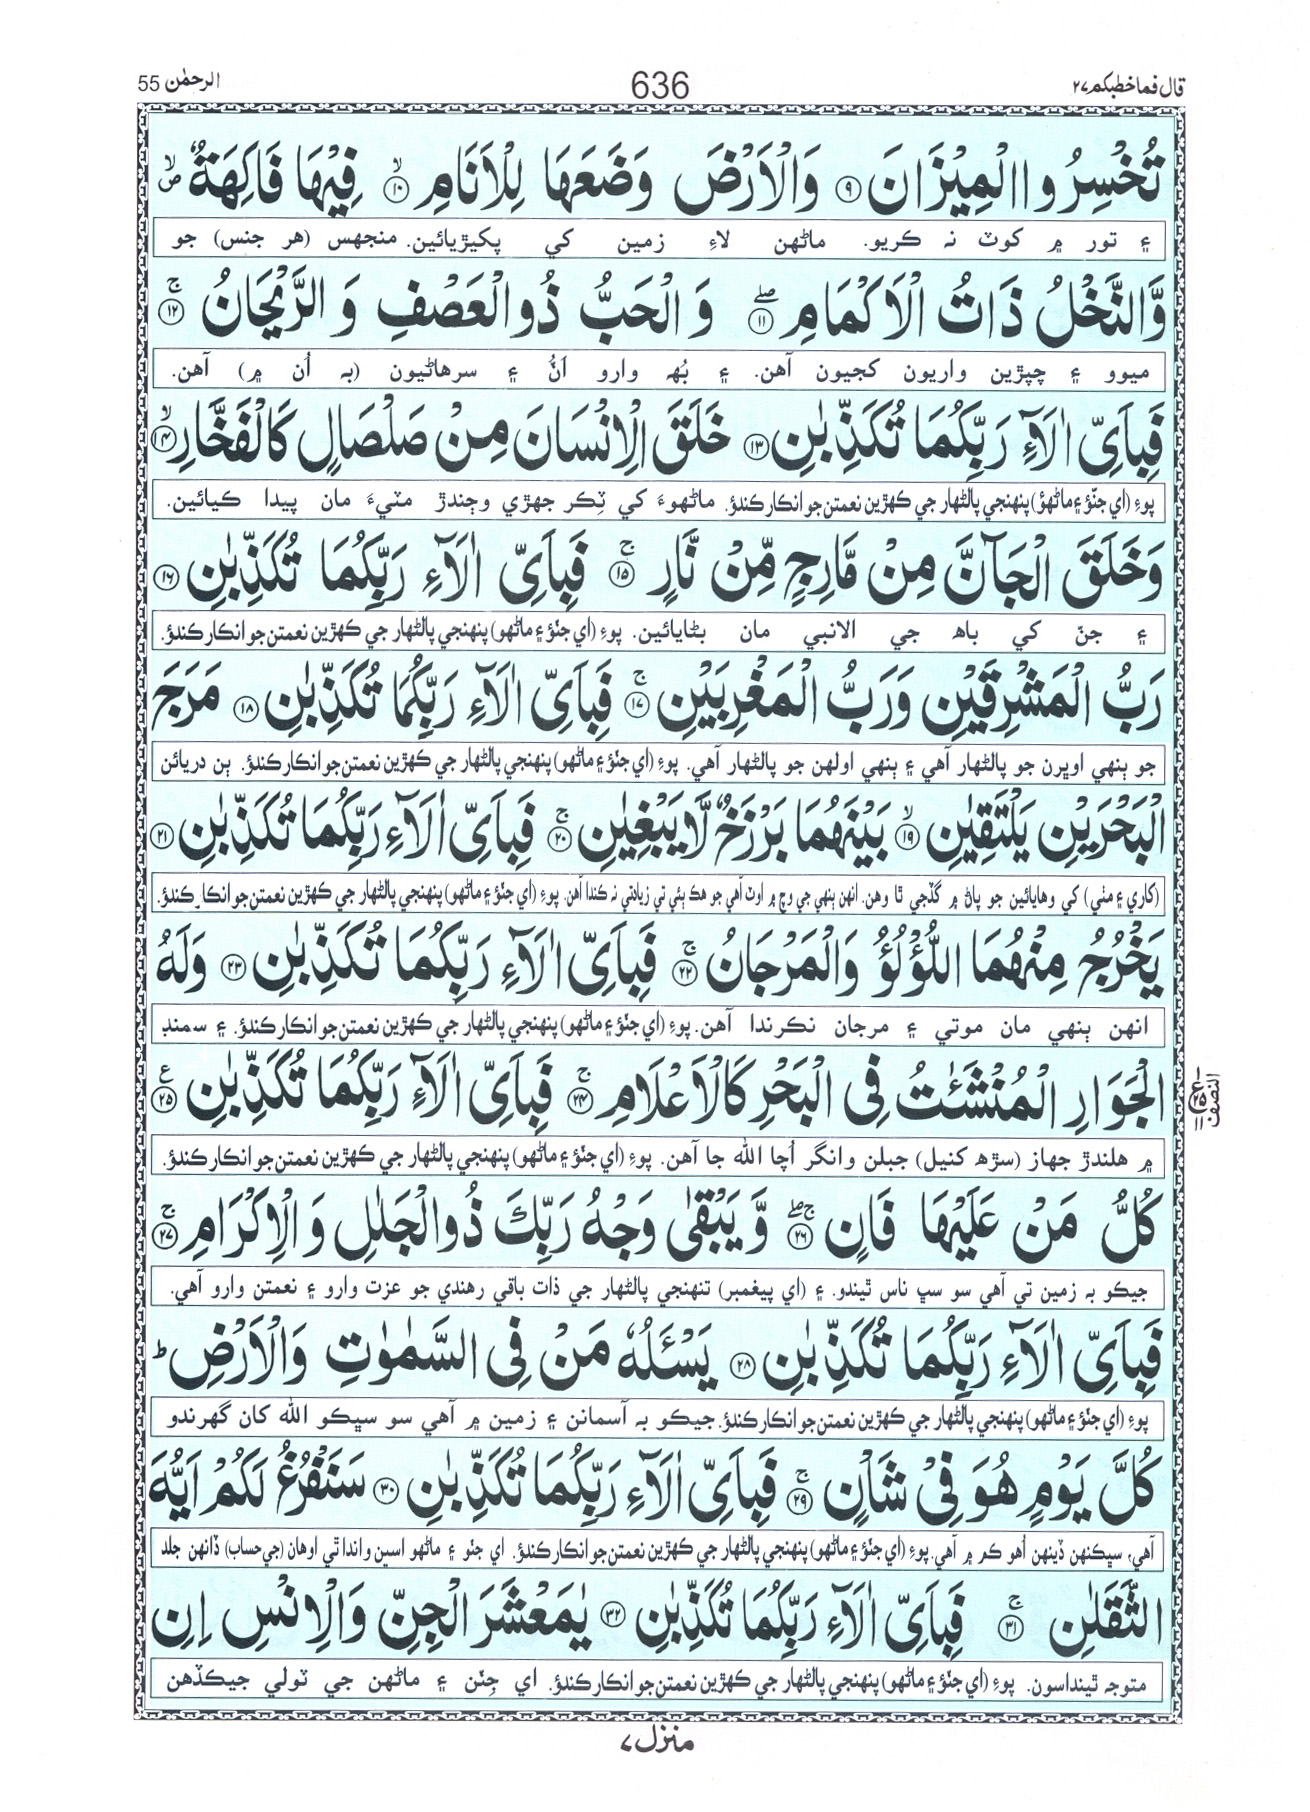 قال فما خطبكم ۲۷
636
الرحمٰن 55
تُخْسِرُوا الْمِيْزَانَ ۝۹ وَالْاَرْضَ وَضَعَهَا لِلْاَنَامِ ۝۱۰ۙ فِيْهَا فَاكِهَةٌ ۪ۙ
۽ تور ۾ کوٽ نہ ڪريو. ماڻهن لاءِ زمين کي پکيڙيائين. منجهس (هر جنس) جو
وَّالنَّخْلُ ذَاتُ الْاَكْمَامِ ۝۱۱ۖ وَالْحَبُّ ذُوالْعَصْفِ وَالرَّيْحَانُ ۝۱۲ۚ
ميوو ۽ چپڙين واريون کجيون آهن. ۽ بُهہ وارو اَنُّ ۽ سرهاڻيون (بہ اُن ۾) آهن.
فَبِاَيِّ اٰلَآءِ رَبِّكُمَا تُكَذِّبٰنِ ۝۱۳ خَلَقَ الْاِنْسَانَ مِنْ صَلْصَالٍ كَالْفَخَّارِ ۝۱۴ۙ
پوءِ (اي جنّؤ ۽ ماڻهؤ) پنهنجي پالڻهار جي ڪهڙين نعمتن جو انڪار ڪندؤ. ماڻهوءَ کي ٺِڪر جهڙي وڄندڙ مٽيءَ مان پيدا ڪيائين.
وَخَلَقَ الْجَآنَّ مِنْ مَّارِجٍ مِّنْ نَّارٍ ۝۱۵ۚ فَبِاَيِّ اٰلَآءِ رَبِّكُمَا تُكَذِّبٰنِ ۝۱۶
۽ جنّ کي باهہ جي الانبي مان بڻايائين. پوءِ (اي جنّؤ ۽ ماڻهو) پنهنجي پالڻهار جي ڪهڙين نعمتن جو انڪار ڪندؤ.
رَبُّ الْمَشْرِقَيْنِ وَرَبُّ الْمَغْرِبَيْنِ ۝۱۷ۚ فَبِاَيِّ اٰلَآءِ رَبِّكُمَا تُكَذِّبٰنِ ۝۱۸ مَرَجَ
جو ٻنهي اوڀرن جو پالڻهار آهي ۽ ٻنهي اولهن جو پالڻهار آهي. پوءِ (اي جنّؤ ۽ ماڻهو) پنهنجي پالڻهار جي ڪهڙين نعمتن جو انڪار ڪندؤ. ٻن دريائن
الْبَحْرَيْنِ يَلْتَقِيٰنِ ۝۱۹ۙ بَيْنَهُمَا بَرْزَخٌ لَّا يَبْغِيٰنِ ۝۲۰ۚ فَبِاَيِّ اٰلَآءِ رَبِّكُمَا تُكَذِّبٰنِ ۝۲۱
(کاري ۽ مٺي) کي وهايائين جو پاڻ ۾ گڏجي ٿا وهن. انهن ٻنهي جي وچ ۾ اوٽ آهي جو هڪ ٻئي تي زيادتي نہ ڪندا آهن. پوءِ (اي جنّؤ ۽ ماڻهو) پنهنجي پالڻهار جي ڪهڙين نعمتن جو انڪار ڪندؤ.
يَخْرُجُ مِنْهُمَا اللُّؤْلُؤُ وَالْمَرْجَانُ ۝۲۲ۚ فَبِاَيِّ اٰلَآءِ رَبِّكُمَا تُكَذِّبٰنِ ۝۲۳ وَلَهُ
انهن ٻنهي مان موتي ۽ مرجان نڪرندا آهن. پوءِ (اي جنّؤ ۽ ماڻهو) پنهنجي پالڻهار جي ڪهڙين نعمتن جو انڪار ڪندؤ. ۽ سمنڊ
الْجَوَارِ الْمُنْشَـٰٔتُ فِى الْبَحْرِ كَالْاَعْلَامِ ۝۲۴ۚ فَبِاَيِّ اٰلَآءِ رَبِّكُمَا تُكَذِّبٰنِ ۝۲۵ۧ
النصف
۾ هلندڙ جهاز (سڙهہ کنيل) جبلن وانگر اُچا الله جا آهن. پوءِ (اي جنّؤ ۽ ماڻهو) پنهنجي پالڻهار جي ڪهڙين نعمتن جو انڪار ڪندؤ.
كُلُّ مَنْ عَلَيْهَا فَانٍ ۝۲۶ۚۖ وَّيَبْقٰى وَجْهُ رَبِّكَ ذُوالْجَلٰلِ وَالْاِكْرَامِ ۝۲۷ۚ
جيڪو بہ زمين تي آهي سو سڀ ناس ٿيندو. ۽ (اي پيغمبر) تنهنجي پالڻهار جي ذات باقي رهندي جو عزت وارو ۽ نعمتن وارو آهي.
فَبِاَيِّ اٰلَآءِ رَبِّكُمَا تُكَذِّبٰنِ ۝۲۸ يَسْـَٔلُهٗ مَنْ فِى السَّمٰوٰتِ وَالْاَرْضِ ؕ
پوءِ (اي جنّؤ ۽ ماڻهو) پنهنجي پالڻهار جي ڪهڙين نعمتن جو انڪار ڪندؤ. جيڪو بہ آسمانن ۽ زمين ۾ آهي سو سڀڪو الله کان گهرندو
كُلَّ يَوْمٍ هُوَ فِىْ شَاْنٍ ۝۲۹ۚ فَبِاَيِّ اٰلَآءِ رَبِّكُمَا تُكَذِّبٰنِ ۝۳۰ سَنَفْرُغُ لَكُمْ اَيُّهَ
آهي، سڀڪنهن ڏينهن اُهو ڪم ۾ آهي. پوءِ (اي جنّؤ ۽ ماڻهو) پنهنجي پالڻهار جي ڪهڙين نعمتن جو انڪار ڪندؤ. اي جنؤ ۽ ماڻهو اسين واندا ٿي اوهان (جي حساب) ڏانهن جلد
الثَّقَلٰنِ ۝۳۱ۚ فَبِاَيِّ اٰلَآءِ رَبِّكُمَا تُكَذِّبٰنِ ۝۳۲ يٰمَعْشَرَ الْجِنِّ وَالْاِنْسِ اِنِ
متوجہ ٿينداسون. پوءِ (اي جنّؤ ۽ ماڻهو) پنهنجي پالڻهار جي ڪهڙين نعمتن جو انڪار ڪندؤ. اي جِنّن ۽ ماڻهن جي ٽولي جيڪڏهن
منزل ۷